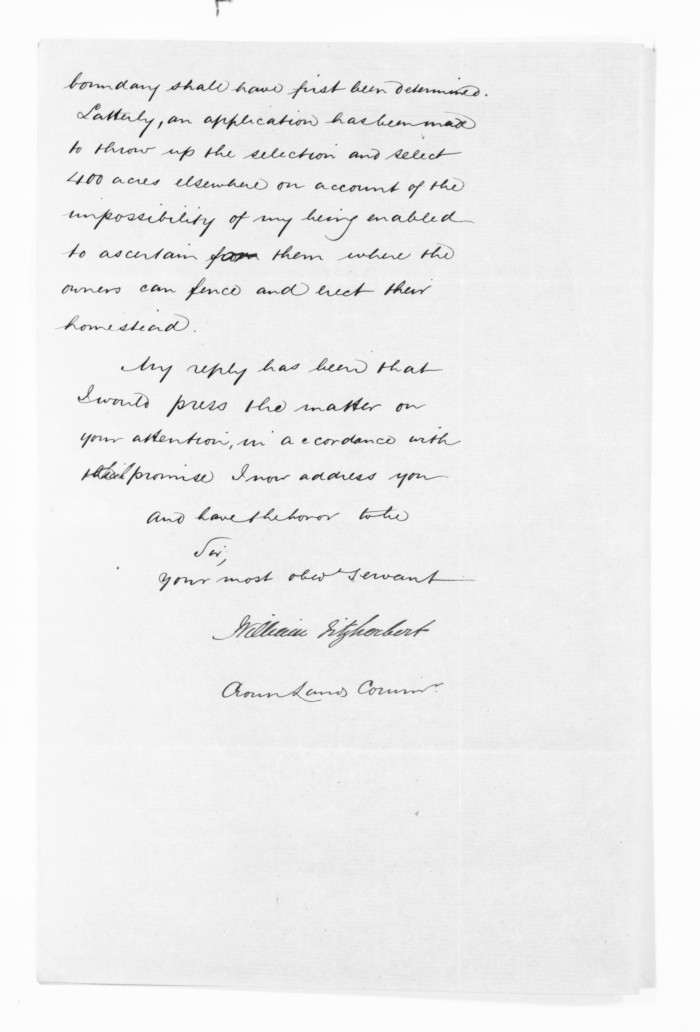 boundary shall have first been determined.
Latterly, an application has been made
to throw up the selection and select
400 acres elsewhere on account of the
impossibility of my being enabled
to ascertain for them where the
owners can fence and erect their
homestead.
My reply has been that
I would press the matter on
your attention, in accordance with
promise I now address you
and have the honor to be
Sir,
your most obedt servant
William Fitzherbert
Crown Lands Commr.